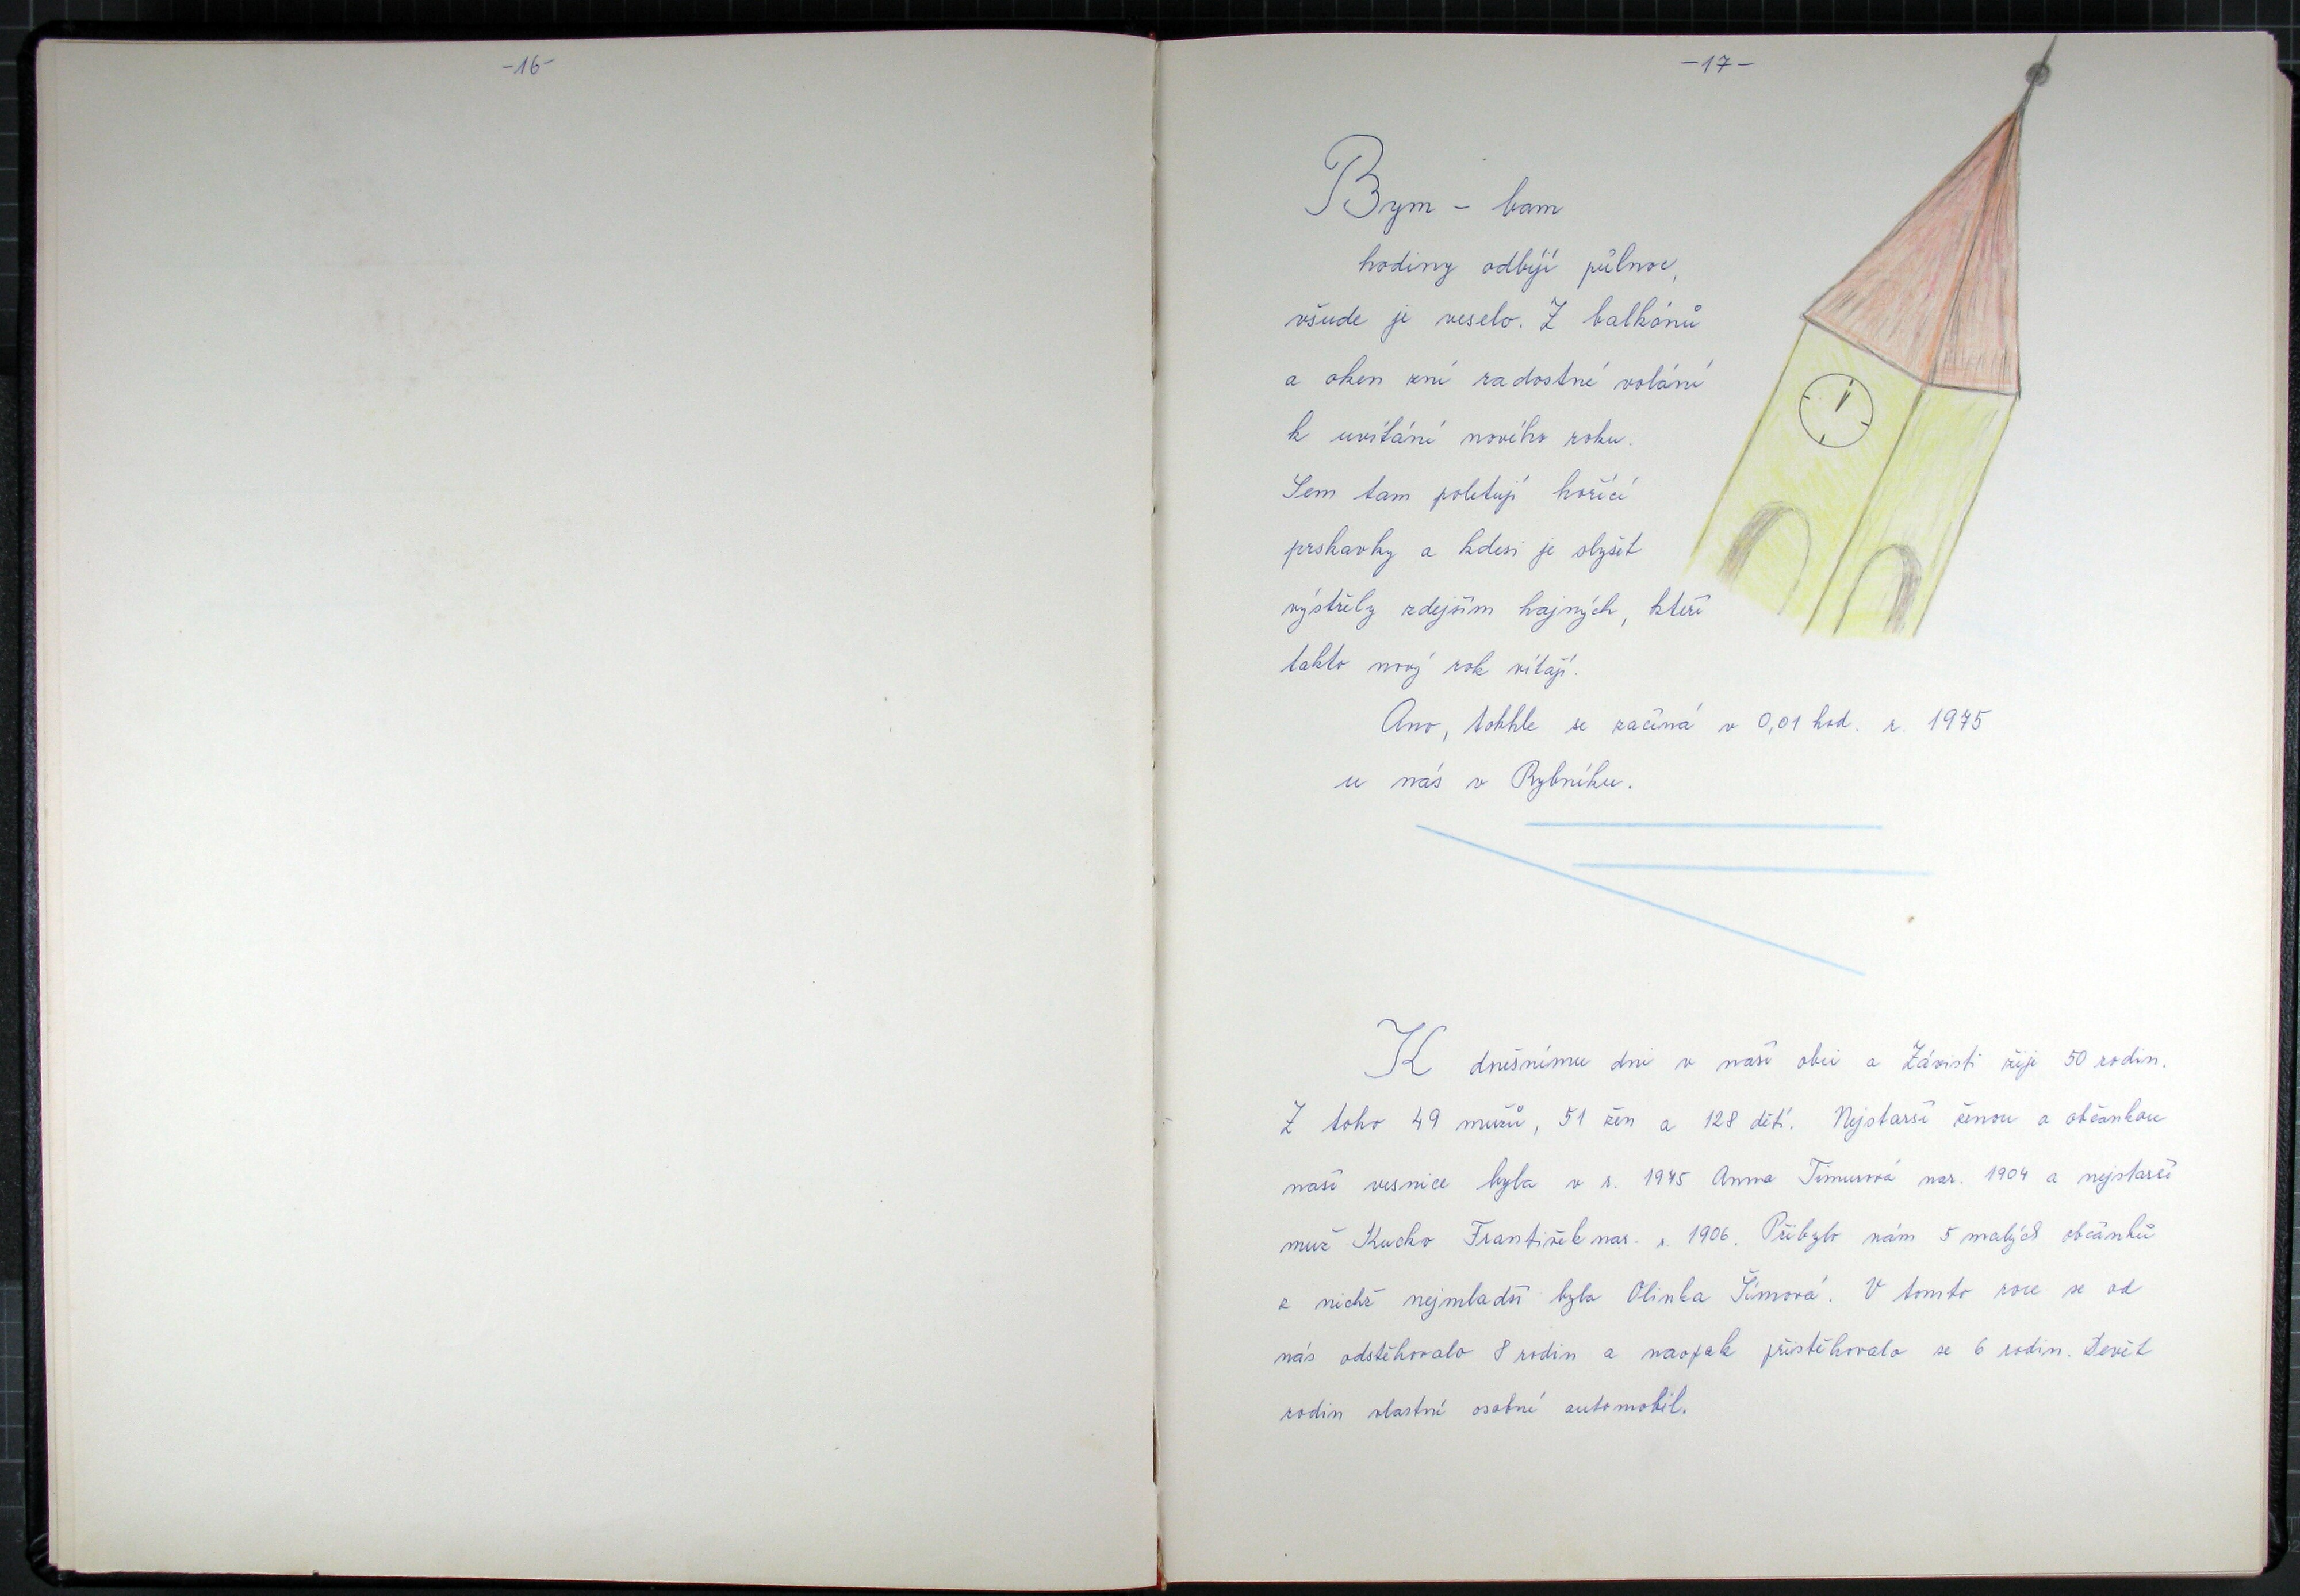 -16-
-17-
Bym - bam
hodiny odbíjí půlnoc,
všude je veselo. Z balkónů
a oken zní radostné volání
k uvítání nového roku.
Sem tam poletují hořící
prskavky a kdesi je slyšet
výstřely zdejším hajných, kteří
takto nový rok vítají.
Ano, takhle se začíná v 0,01 hod. r. 1975
u nás v Rybníku.
K dnešnímu dni v naší obci a Závisti žije 50 rodin.
Z toho 49 mužů, 51 žen a 128 dětí. Nejstarší ženou a občankou
naší vesnice byla v r. 1975 Anna Timurová nar. 1904 a nejstarší
muž Kucko František nar. r. 1906. Přibylo nám 5 malých občánků
z nichž nejmladší byla Olinka Šímová. V tomto roce se od
nás odstěhovalo 8 rodin a naopak přistěhovalo se 6 rodin. Devět
rodin vlastní osobní automobil.